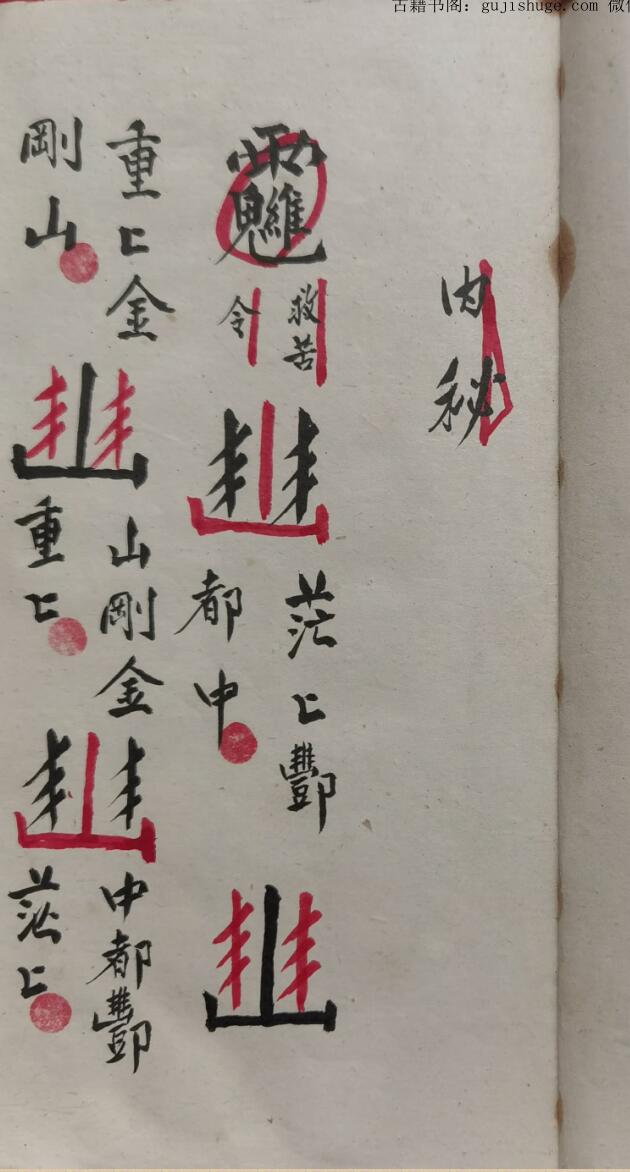 古籍书阁: gujishuge.com 微
内秘
救苦
令
茫〻酆
都中
重〻金
剛山
山剛金
重〻
中都酆
茫〻